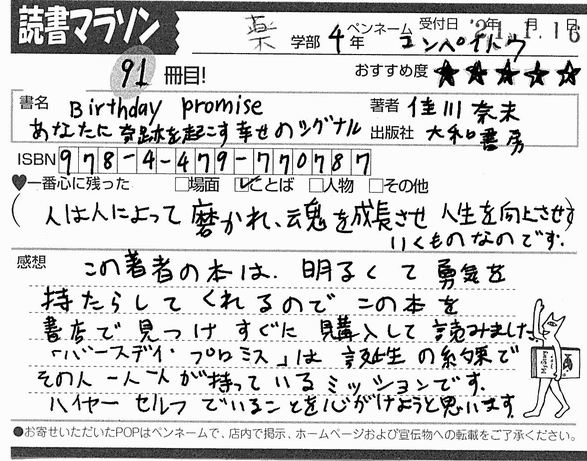 読書マラソン
薬 学部 4年 ペンネーム コンペイトウ 受付日 '21年1月16日
91冊目! おすすめ度 ★★★★★
書名 Birthday promise 著者 佳川 奈未
あなたに奇跡を起こす幸せのシグナル 出版社 大和書房
ISBN 978-4-479-770787
♥一番心に残った □場面 ☑ことば □人物 □その他
(人は人によって磨かれ、魂を成長させ 人生を向上させて)
いくものなのです。
感想 この著者の本は、明るくて勇気を
持たらしてくれるのでこの本を
書店で見つけすぐに購入して読みました。
「バースデイ・プロミス」は誕生の約束で
その人一人一人が持っているミッションです。
ハイヤーセルフでいることを心がけようと思います。
●お寄せいただいたPOPはペンネームで、店内で掲示、ホームページおよび宣伝物への転載をご了承ください。